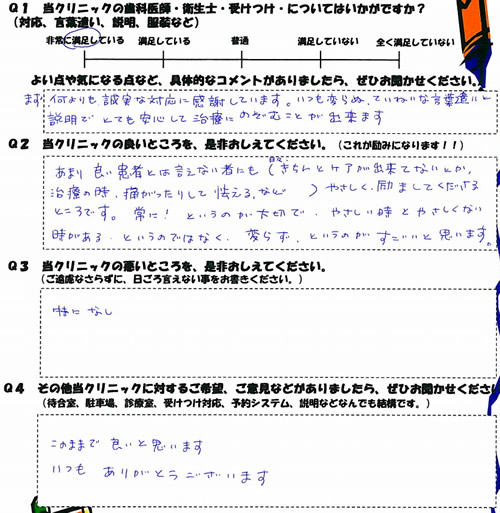 Q1 当クリニックの歯科医師・衛生士・受けつけ・についてはいかがですか?
(対応、言葉遣い、説明、服装など)
非常に満足している 満足している 普通 満足していない 全く満足していない
よい点や気になる点など、具体的なコメントがありましたら、ぜひお聞かせください。
まず 何よりも 誠実な対応に感謝しています。いつも変らぬ、ていねいな言葉遣いと
説明で とても安心して治療にのぞむことが出来ます
Q2 当クリニックの良いところを、是非おしえてください。(これが励みになります!!)
あまり良い患者とは言えない者にも(きちんとケアが出来てないとか、
治療の時、痛がったりして怯える、など )やさしく励ましてくださる
ところです。常に!というのが大切で、やさしい時とやさしくない
時がある、というのではなく、変らず、というのがすごいいと思います。
Q3 当クリニックの悪いところを、是非おしえてください。
(ご遠慮なさらずに、日ごろ言えない事をお書きください。)
特に なし
Q4 その他当クリニックに対するご希望、ご意見などがありましたら、ぜひお聞かせくださ
(待合室、駐車場、診療室、受けつけ対応、予約システム、説明などなんでも結構です。)
このままで 良いと思います
いつも ありがとうございます